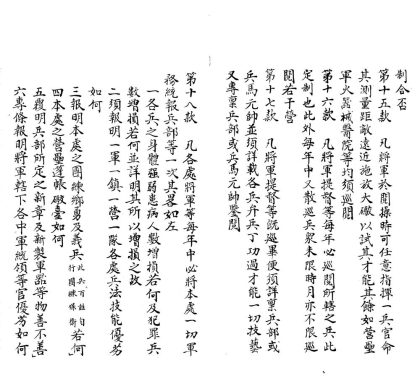 制合否
第十五款　凡將軍於閱操時可任意指揮一兵官命
其測量距敵遠近施放大礮以試其才能其餘如營壘
軍火器械醫院等均須巡閱
第十六款　凡將軍提督等每年必巡閱所轄之兵此
定制也此外每年中又散巡兵衆未限時月亦不限巡
閱若干營
第十七款　凡將軍提督等既巡畢便須詳稟兵部或
兵馬元帥並須詳載各兵弁兵丁功過才能一切技藝
又專稟兵部或兵馬元帥鑒閱
第十八款　凡各處將軍等每年中必將本處一切軍
務統報兵部等一次其畧如左
一各兵之身體强弱患病人數增損若何及犯罪兵
數增損若何並詳明其所以增損之故
二須報明一軍一鎮一營一隊各處兵法技能優劣
如何
三報明本處之團練鄉勇及義兵此兵可註自行團練珠衛若何
四本處之營壘蓬帳礮臺如何
五覆明兵部所定之新章及新製軍器等物善不善
六專條報明將軍轄下各中軍統領等官優劣如何